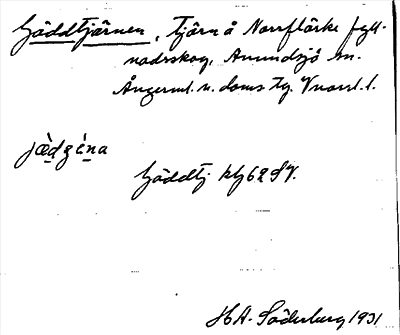 Gäddtjärnen, Tjärn å Norrflärke fyll-
nadsskog, Anundsjö sn.
Ångerml. n. doms tg. Vnorrl. l.
jæ̀dʒèṇa
Gäddtj kbg 62 SV.
HA. Söderberg 1931